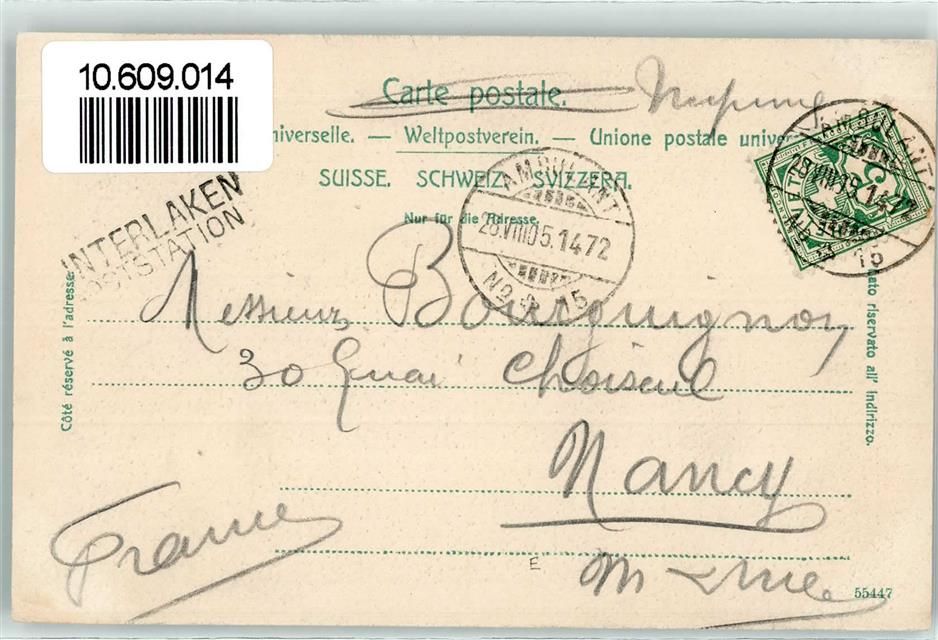 10.609.014
Carte postale.
niverselle. — Weltpostverein. — Unione postale univer
SUISSE. SCHWEIZ. SVIZZERA.
Nur für die Adresse.
INTERLAKEN
POSTSTATION
AMBULANT
28.VIII05.1472
No 15
AMBULANT
28.VIII
1472
15
5
Côté réservé à l'adresse.
lato riservato all' indirizzo.
Messieurs Bourguignon
30 Quai Choiseul
Nancy
France
M
E
55447